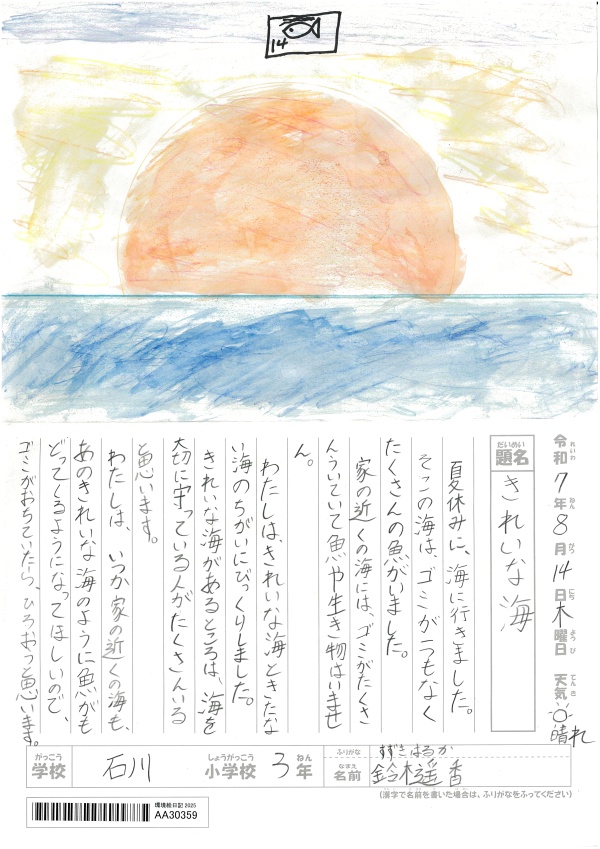 14
れいわ
令和7年8月14日木曜日 天気 晴れ
ねん がつ にち ようび てんき
だいめい
題名
きれいな海
夏休みに、海に行きました。
そこの海は、ゴミが一つもなく
たくさんの魚がいました。
家の近くの海には、ゴミがたくさ
んういていて魚や生き物はいませ
ん。
わたしは、きれいな海ときたな
い海のちがいにびっくりしました。
きれいな海があるところは、海を
大切に守っている人がたくさんいる
と思います。
わたしは、いつか家の近くの海も、
あのきれいな海のように魚がも
どってくるようになってほしいので、
ゴミがおちていたら、ひろおうと思います。
がっこう
学校
石川
しょうがっこう
小学校
3
ねん
年
ふりがな
すずきはるか
なまえ
名前
鈴木遥香
(漢字で名前を書いた場合は、ふりがなをふってください)
環境絵日記 2025
AA30359